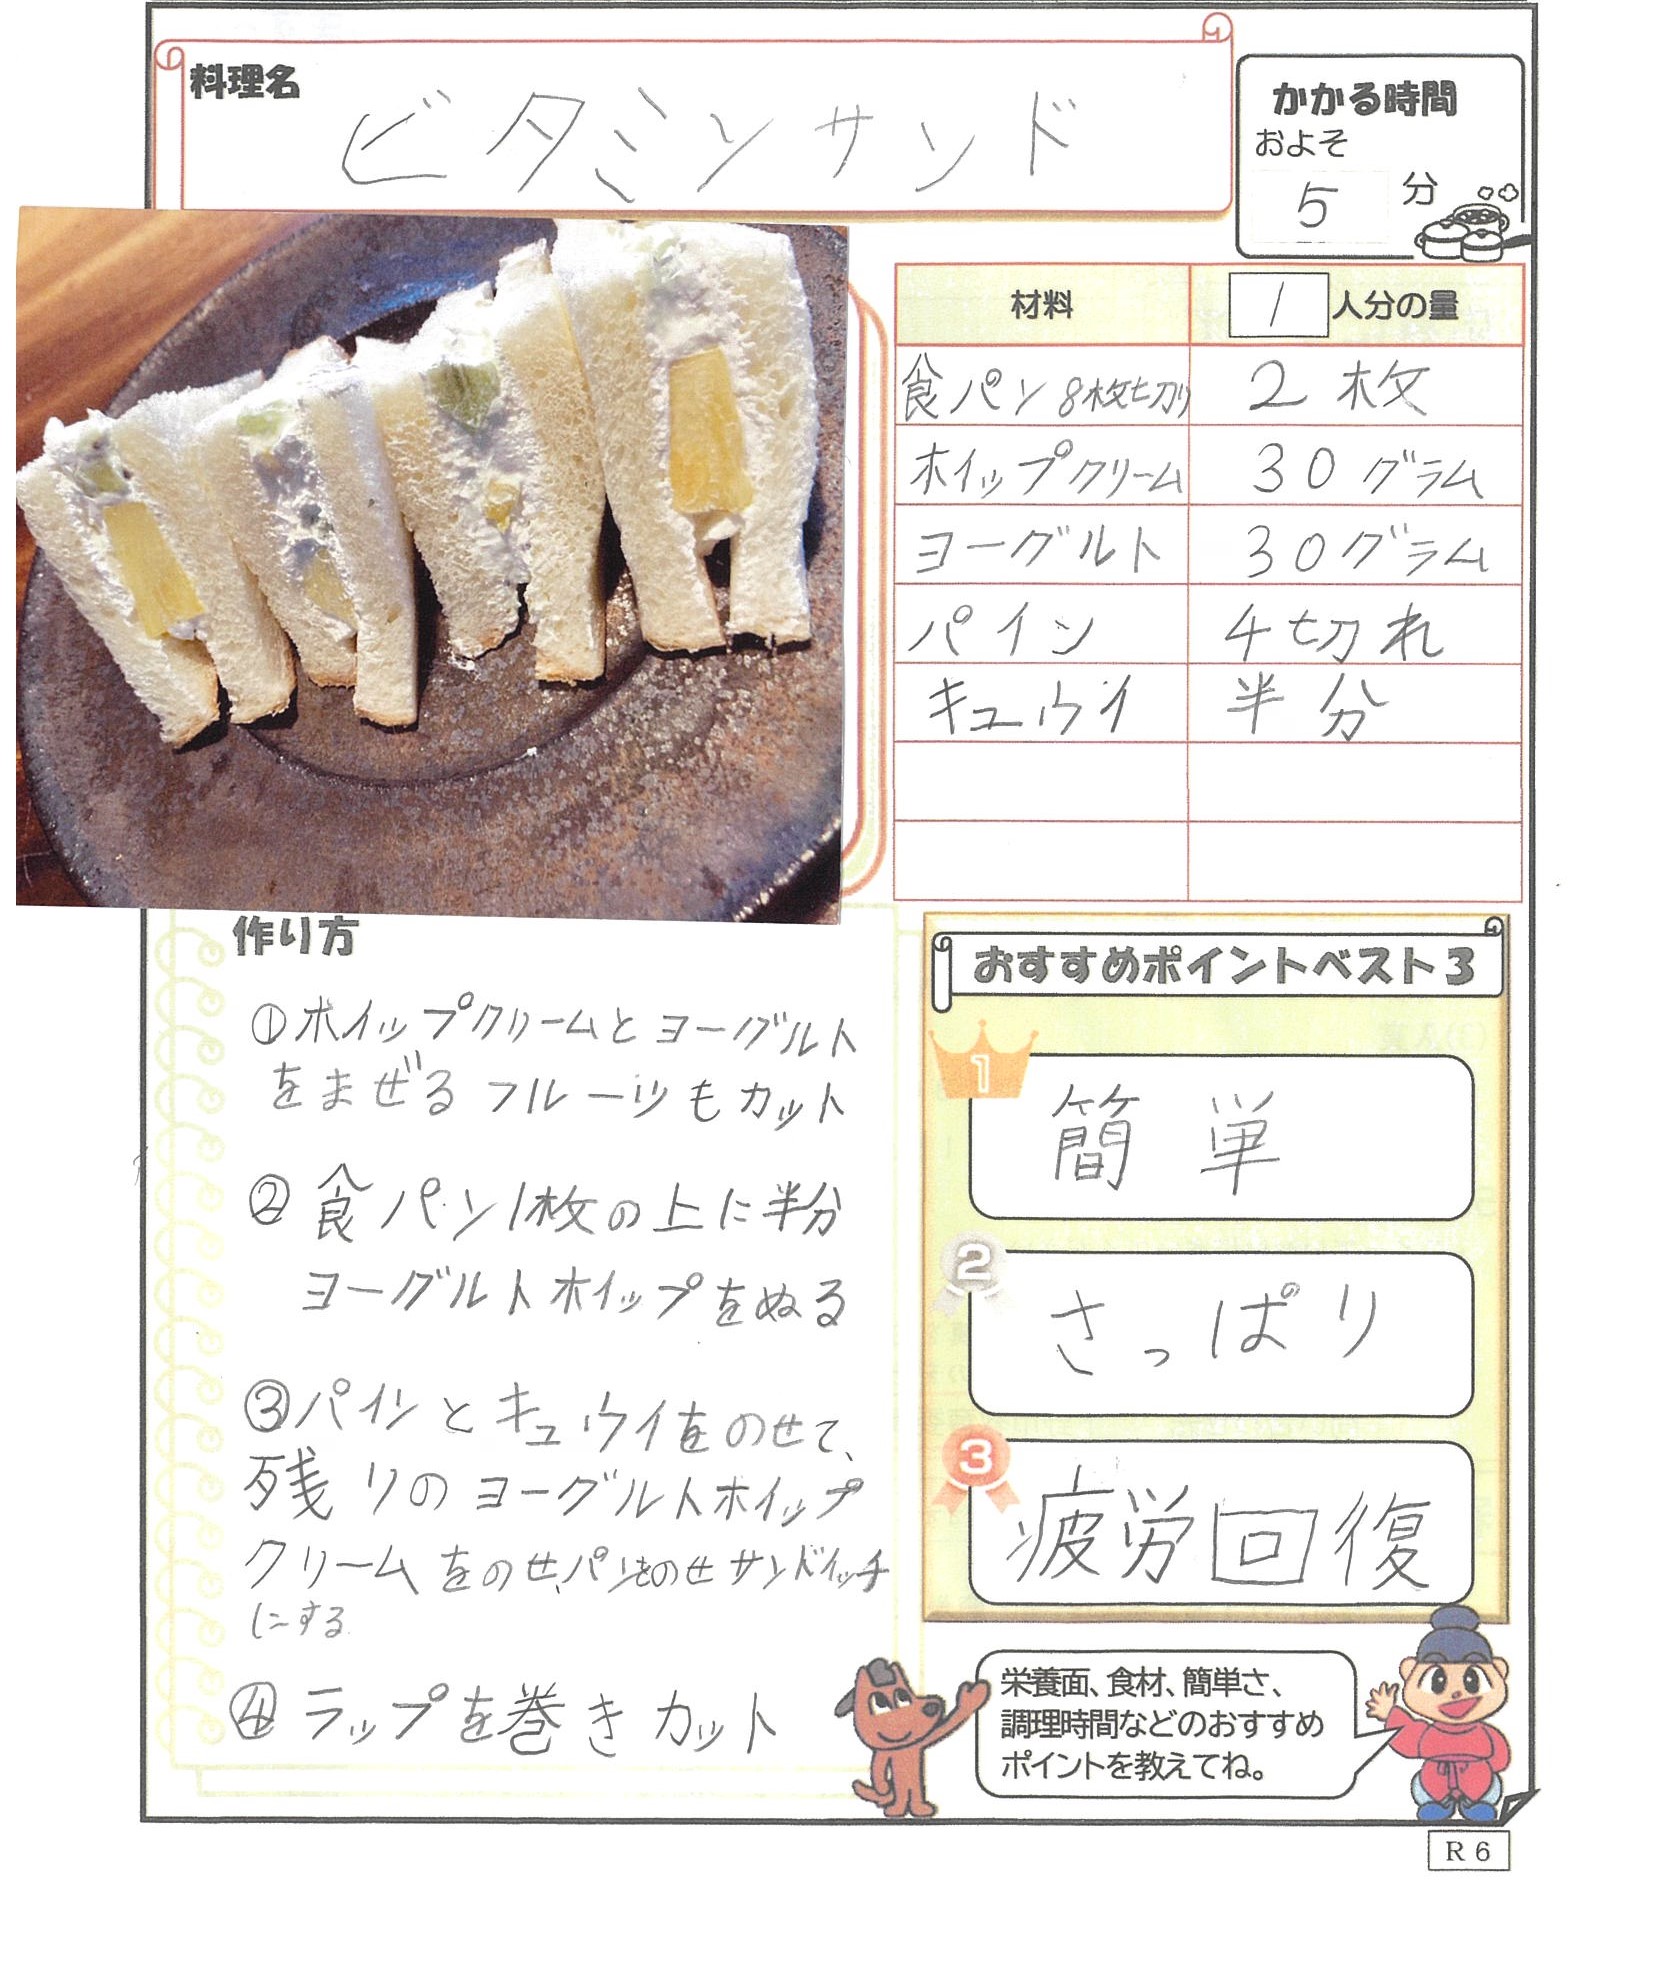 料理名
ビタミンサンド
かかる時間
およそ
5 分
材料 1 人分の量
食パン 8枚切り 2枚
ホイップクリーム 30グラム
ヨーグルト 30グラム
パイン 4切れ
キュウイ 半分
作り方
①ホイップクリームとヨーグルト
をまぜる フルーツもカット
②食パン1枚の上に半分
ヨーグルトホイップをぬる
③パインとキュウイをのせて、
残りのヨーグルトホイップ
クリームをのせ、パンをのせサンドイッチ
にする
④ラップを巻きカット
おすすめポイントベスト3
1
簡単
2
さっぱり
3
疲労回復
栄養面、食材、簡単さ、
調理時間などのおすすめ
ポイントを教えてね。
R6